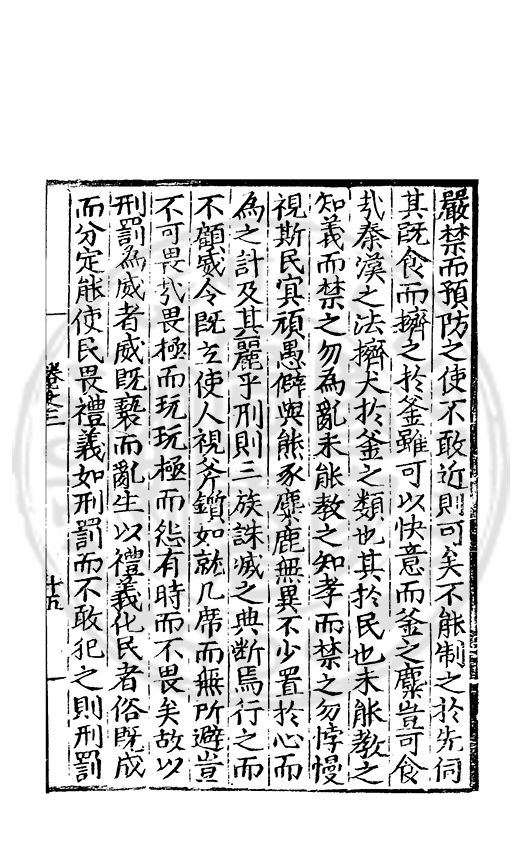 嚴禁而預防之使不敢近則可矣不能制之於先伺
其既食而擠之於釜雖可以快意而釜之麋豈可食
哉秦漢之法擠犬於釜之類也其於民也未能教之
知義而禁之勿為亂未能教之知孝而禁之勿悖慢
視斯民冥頑愚僻與熊豕麋鹿無異不少置於心而
為之計及其麗乎刑則三族誅滅之典斷焉行之而
不顧威令既立使人視斧鑕如就几席而無所避豈
不可畏哉畏極而玩玩極而怨有時而不畏矣故以
刑罰為威者威既褻而亂生以禮義化民者俗既成
而分定能使民畏禮義如刑罰而不敢犯之則刑罰
卷之三
十五